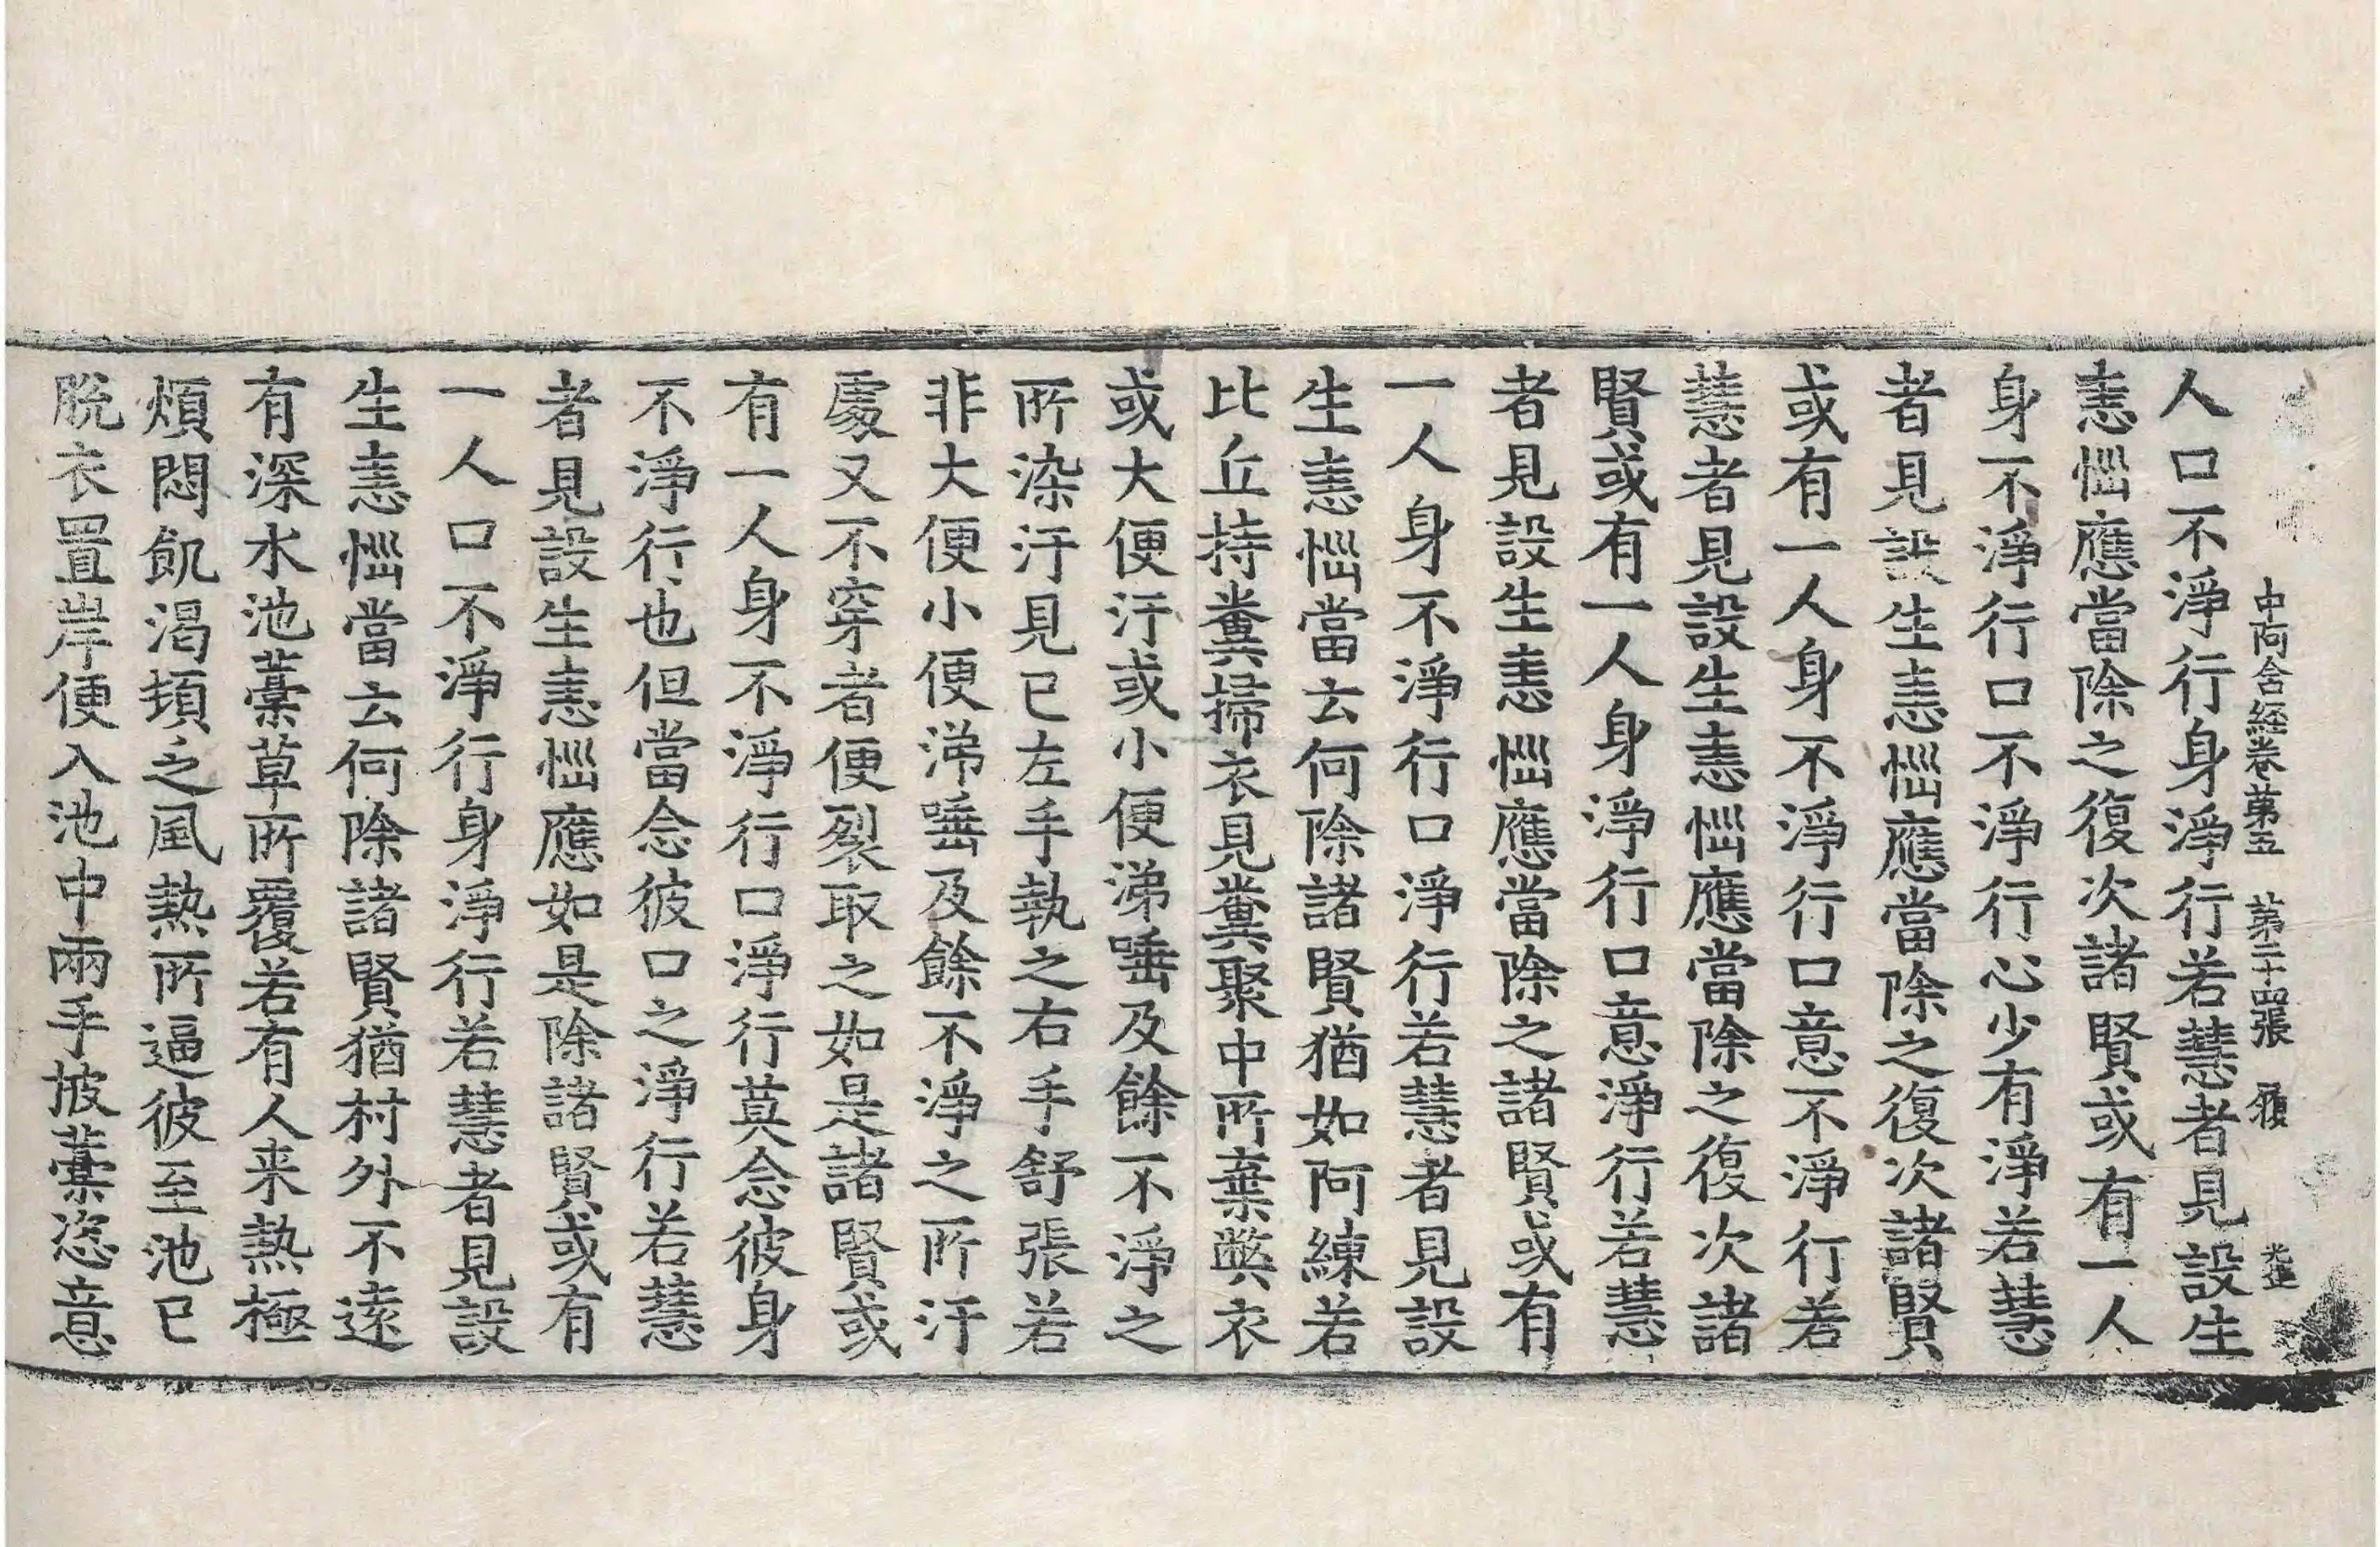 中阿含經卷第五　第二十四張　領
人口不淨行身淨行若慧者見設生
恚惱應當除之復次諸賢或有一人
身不淨行口不淨行心少有淨若慧
者見設生恚惱應當除之復次諸賢
或有一人身不淨行口意不淨行若
慧者見設生恚惱應當除之復次諸
賢或有一人身淨行口意淨行若慧
者見設生恚惱應當除之諸賢或有
一人身不淨行口淨行若慧者見設
生恚惱當云何除諸賢猶如阿練若
比丘持糞掃衣見糞聚中所棄弊衣
或大便汙或小便涕唾及餘不淨之
所染汙見已左手執之右手舒張若
非大便小便涕唾及餘不淨之所汙
處又不穿者便裂取之如是諸賢或
有一人身不淨行口淨行莫念彼身
不淨行也但當念彼口之淨行若慧
者見設生恚惱應如是除諸賢或有
一人口不淨行身淨行若慧者見設
生恚惱當云何除諸賢猶村外不遠
有深水池藁草所覆若有人来熱極
煩悶飢渴頓乏風熱所逼彼至池已
脫衣置岸便入池中兩手披藁恣意